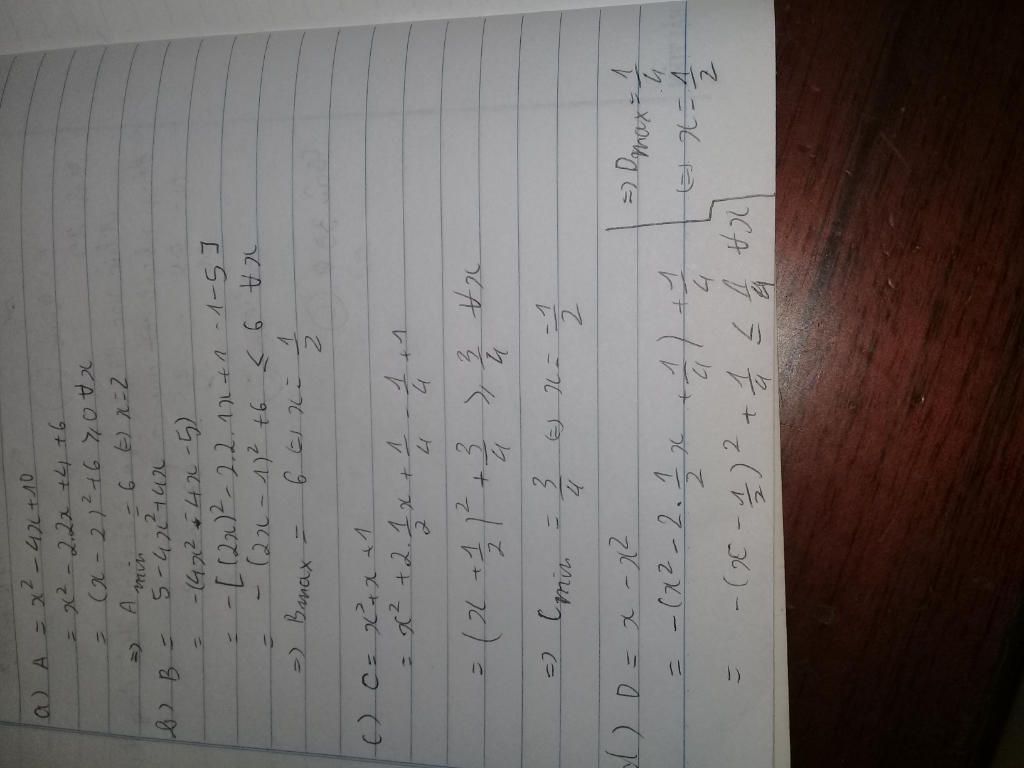 a) A = x² - 4x + 10
= x² - 2.2x + 4 + 6
= (x - 2)² + 6 ≥ 0 ∀x
=> A min = 6 (=) x = 2
b) B = 5 - 4x² + 4x
= -(4x² - 4x - 5)
= -[(2x)² - 2.2.1x + 1 - 1 - 5]
= -(2x - 1)² + 6 ≤ 6 ∀x
=> B max = 6 (=) x = 1/2
c) C = x² + x + 1
= x² + 2.1/2x + 1/4 - 1/4 + 1
= (x + 1/2)² + 3/4 ≥ 3/4 ∀x
=> C min = 3/4 (=) x = -1/2
d) D = x - x²
= -(x² - 2.1/2x + 1/4) + 1/4
= -(x - 1/2)² + 1/4 ≤ 1/4 ∀x
=> D max = 1/4
(=) x = 1/2